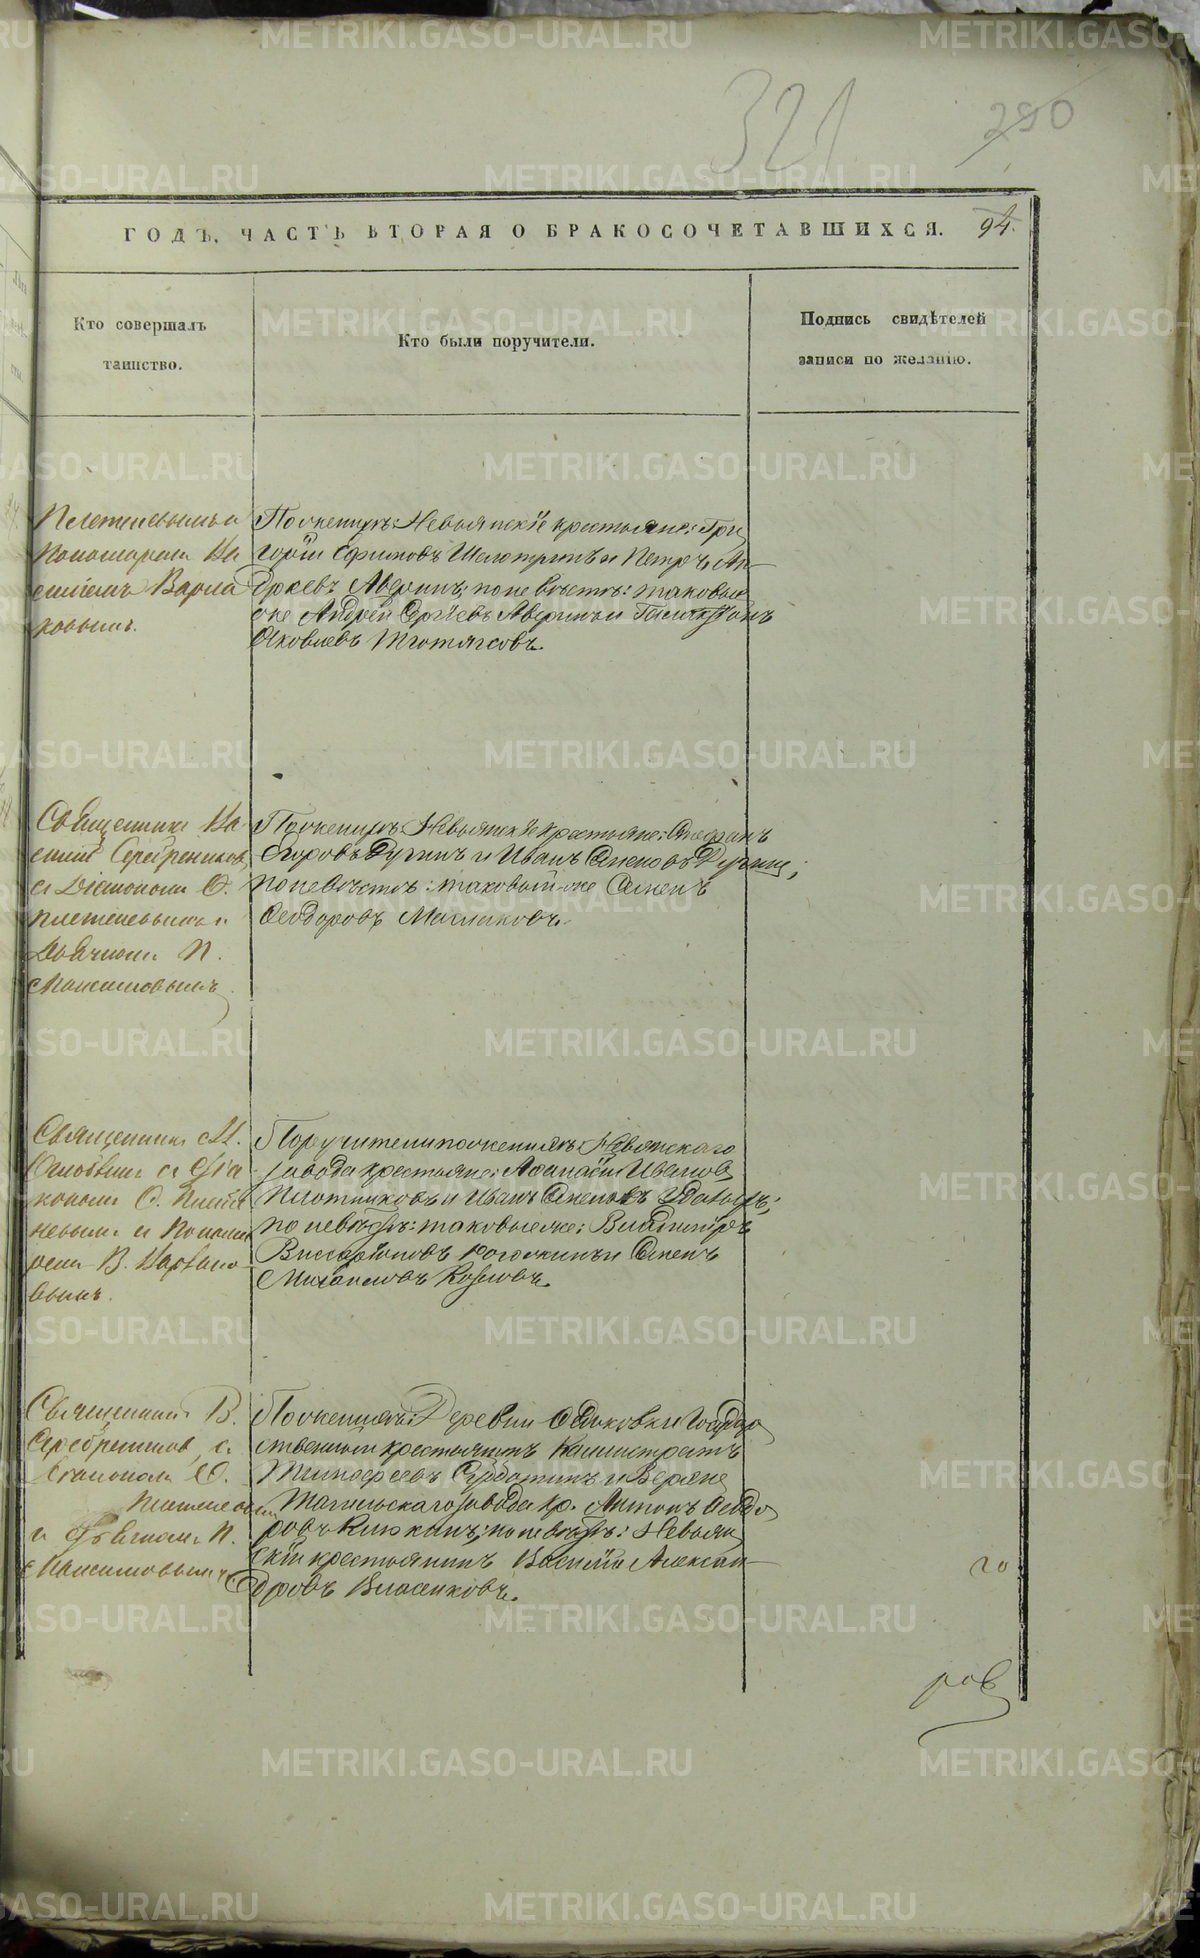 METRIKI.GASO-URAL.RU
321
290
ГОДЪ. ЧАСТЬ ВТОРАЯ О БРАКОСОЧЕТАВШИХСЯ.
94.
Кто совершалъ
таинство.
Кто были поручители.
Подпись свидѣтелей
записи по желанію.
Плетневымъ и
Пономаремъ Ва
силіемъ Варла
ковымъ.
По женихѣ: Невьянскіе крестьяне: Гри
горій Ефимовъ и Петръ Ан-
дреевъ Аверинъ; по невѣстѣ: таковые
же Андрей Сергѣевъ Аверинъ и
Яковлевъ
Священникъ Ва
силій Серебренниковъ
съ Діакономъ Ѳ.
Плетневымъ и
Дьячкомъ П.
Максимовымъ
По женихѣ: Невьянскіе крестьяне: Стефанъ
Егоровъ Дугинъ и Иванъ Семеновъ Дугинъ;
по невѣстѣ: таковый-же Семенъ
Ѳеодоровъ Маслаковъ.
Священникъ М.
съ Діа
кономъ Ѳ. Плет
невымъ и Понома
ремъ В. Варлако
вымъ.
Поручители по женихѣ: Невьянскаго
завода крестьяне: Афанасій Ивановъ
Плотниковъ и Иванъ Семеновъ
по невѣстѣ: таковые же: Владиміръ
Виссаріоновъ и Семенъ
Михайловъ Козловъ.
Священникъ В.
Серебренниковъ съ
Діакономъ Ѳ.
Плетневымъ
и Дьячкомъ П.
Максимовымъ
По женихѣ: Деревни Государ
ственный крестьянинъ Каллистратъ
Тимофеевъ и Верхне
Тагильскаго завода кр. Антонъ Ѳеодо
ровъ по невѣстѣ: Невьян
скій крестьянинъ Василій Алексан-
дровъ Власиковъ.
го
ров